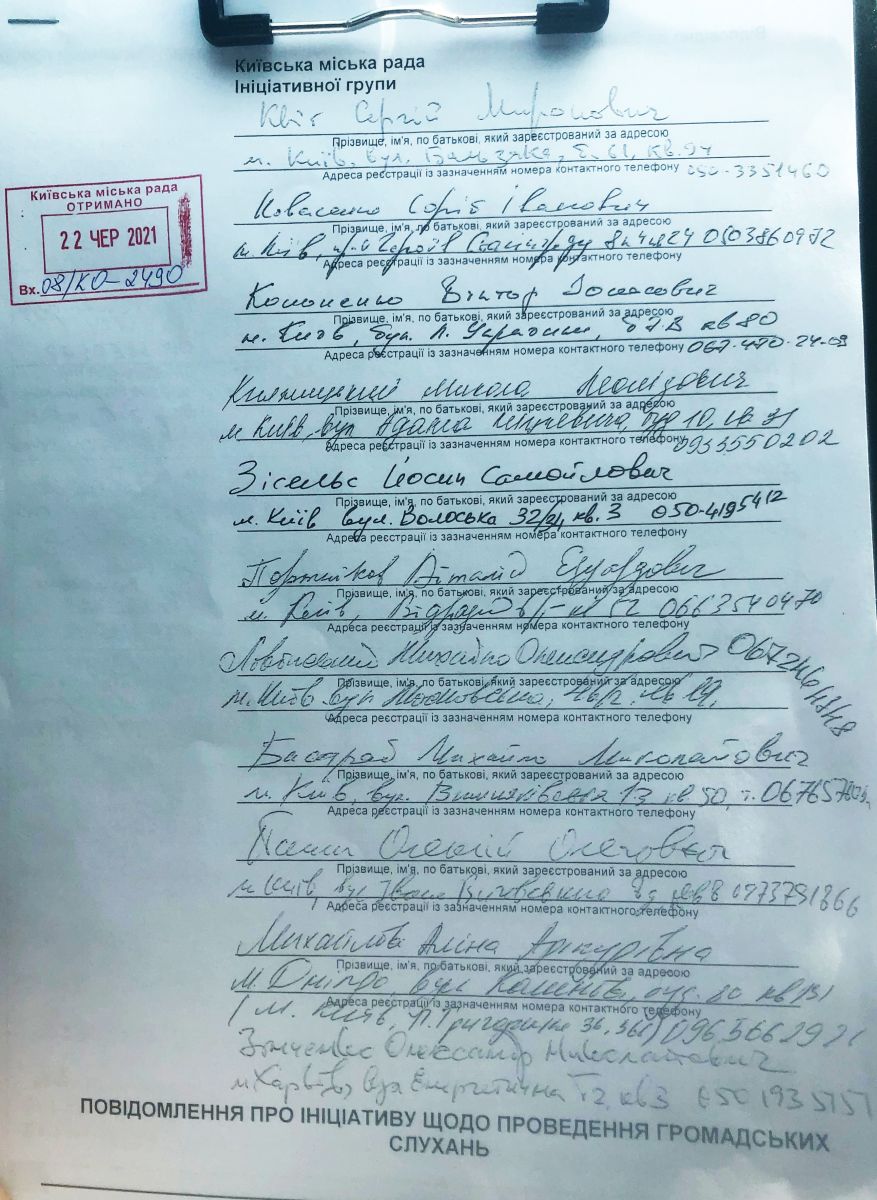 Київська міська рада
Ініціативної групи
Квіт Сергій Миронович
Прізвище, ім'я, по батькові, який зареєстрований за адресою
м. Київ, вул. Бальзака, б. 61, кв. 94
Адреса реєстрації із зазначенням номера контактного телефону 050-3351460
Київська міська рада
ОТРИМАНО
22 ЧЕР 2021
Вх. 08/КО-2490
Іванович
Прізвище, ім'я, по батькові, який зареєстрований за адресою
м. Київ, Героїв Сталінграду 0503860972
Адреса реєстрації із зазначенням номера контактного телефону
Кононенко Віктор
Прізвище, ім'я, по батькові, який зареєстрований за адресою
м. Київ, бул. Л. Українки, кв 80
Адреса реєстрації із зазначенням номера контактного телефону 067-470-24-09
Княжицький Микола Леонідович
Прізвище, ім'я, по батькові, який зареєстрований за адресою
м Київ, вул Адама Міцкевича, буд 10, кв
Адреса реєстрації із зазначенням номера контактного телефону 0933550202
Зісельс Йосип Самойлович
Прізвище, ім'я, по батькові, який зареєстрований за адресою
м. Київ вул. Волоська кв. 3 050-4195412
Адреса реєстрації із зазначенням номера контактного телефону
Портніков Віталій Едуардович
Прізвище, ім'я, по батькові, який зареєстрований за адресою
м. Київ, 0663540470
Адреса реєстрації із зазначенням номера контактного телефону
Михайло Олександрович
Прізвище, ім'я, по батькові, який зареєстрований за адресою
м. Київ вул 46/2, кв 19,
Адреса реєстрації із зазначенням номера контактного телефону
Михайло Миколайович
Прізвище, ім'я, по батькові, який зареєстрований за адресою
м. Київ, вул. Вишняківська 13 кв 50, т.
Адреса реєстрації із зазначенням номера контактного телефону
Олексій Олегович
Прізвище, ім'я, по батькові, який зареєстрований за адресою
м Київ, вул Івана Виговського
Адреса реєстрації із зазначенням номера контактного телефону
Михайлова Аліна Артурівна
Прізвище, ім'я, по батькові, який зареєстрований за адресою
м. Дніпро, вул буд. 20 кв 131
Адреса реєстрації із зазначенням номера контактного телефону
м. Київ, П. Григоренка 36,
Зінченко Олександр Миколайович
м Харків, вул Енергетична кв3
ПОВІДОМЛЕННЯ ПРО ІНІЦІАТИВУ ЩОДО ПРОВЕДЕННЯ ГРОМАДСЬКИХ
СЛУХАНЬ